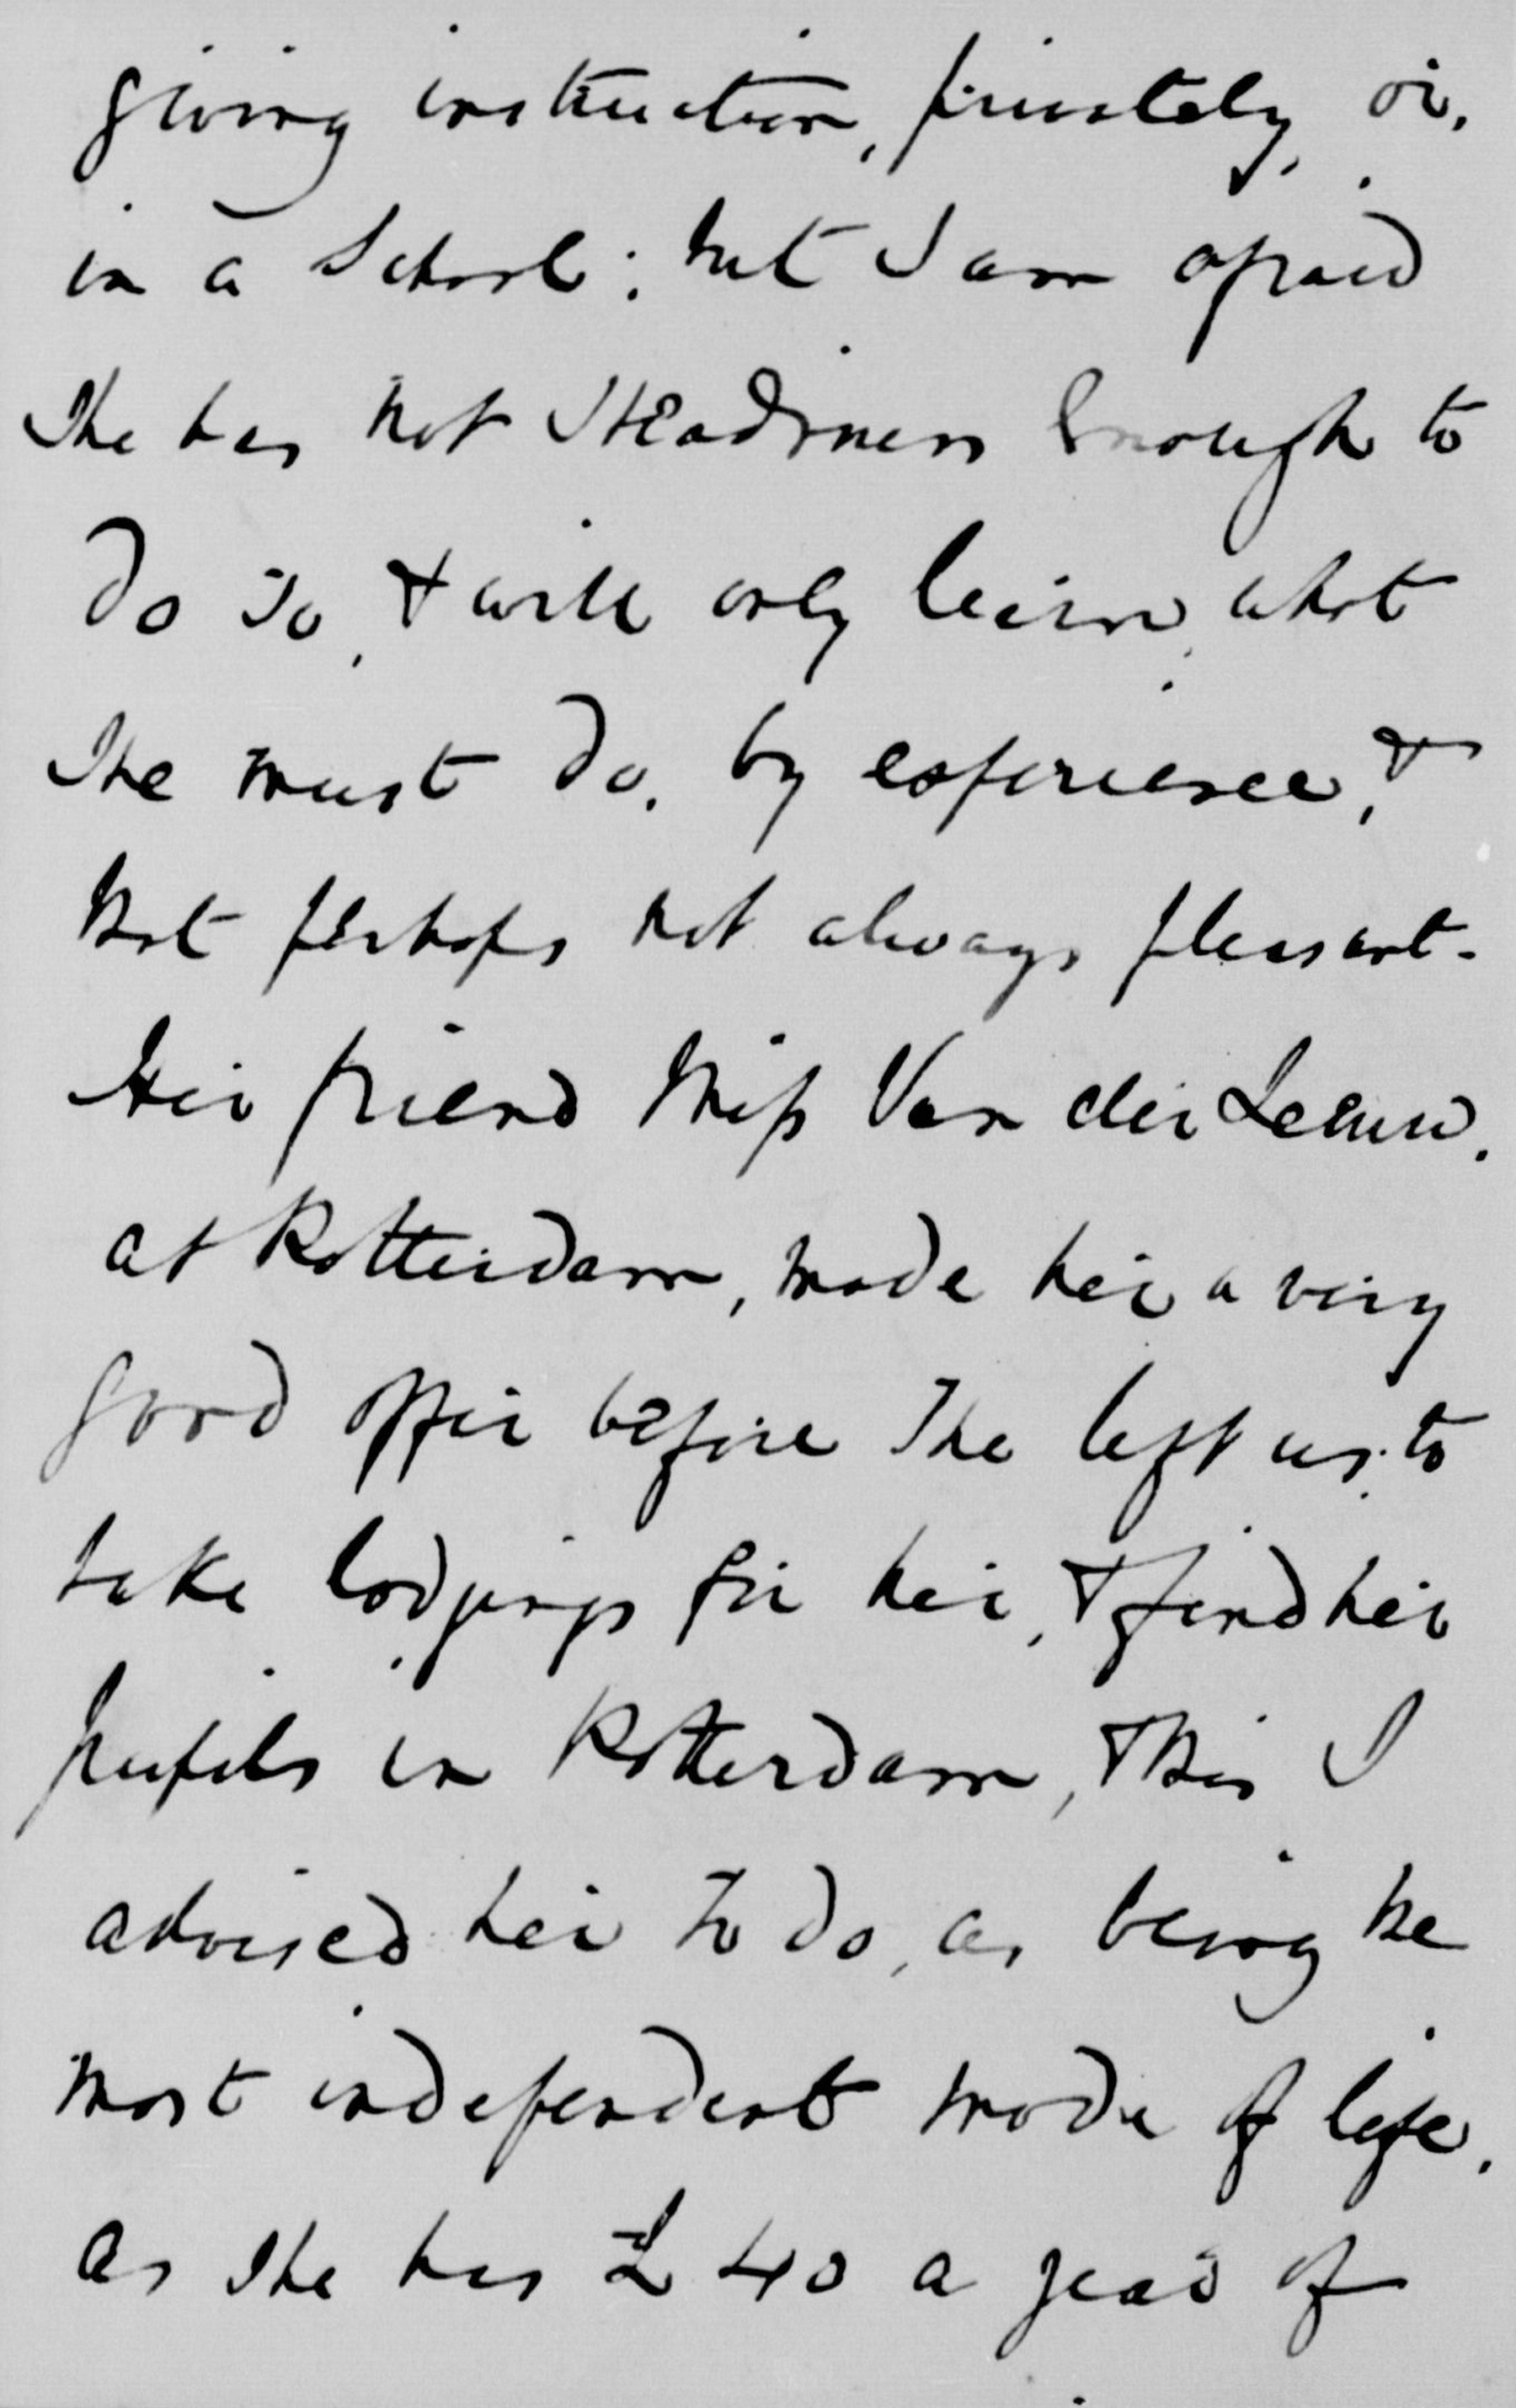 giving instruction, privately, or,
in a School: but I am afraid
She has not Steadiness Enough to
do so, & will only learn, what
She must do, by experience, &
that perhaps not always pleasant.
Her friend Miss Van der Leeuw,
at Rotterdam, made her a very
good offer before She left us, to
take lodgings for her, & find her
pupils in Rotterdam, This I
advised her to do, as being the
most independent mode of life,
as She has £40 a year of